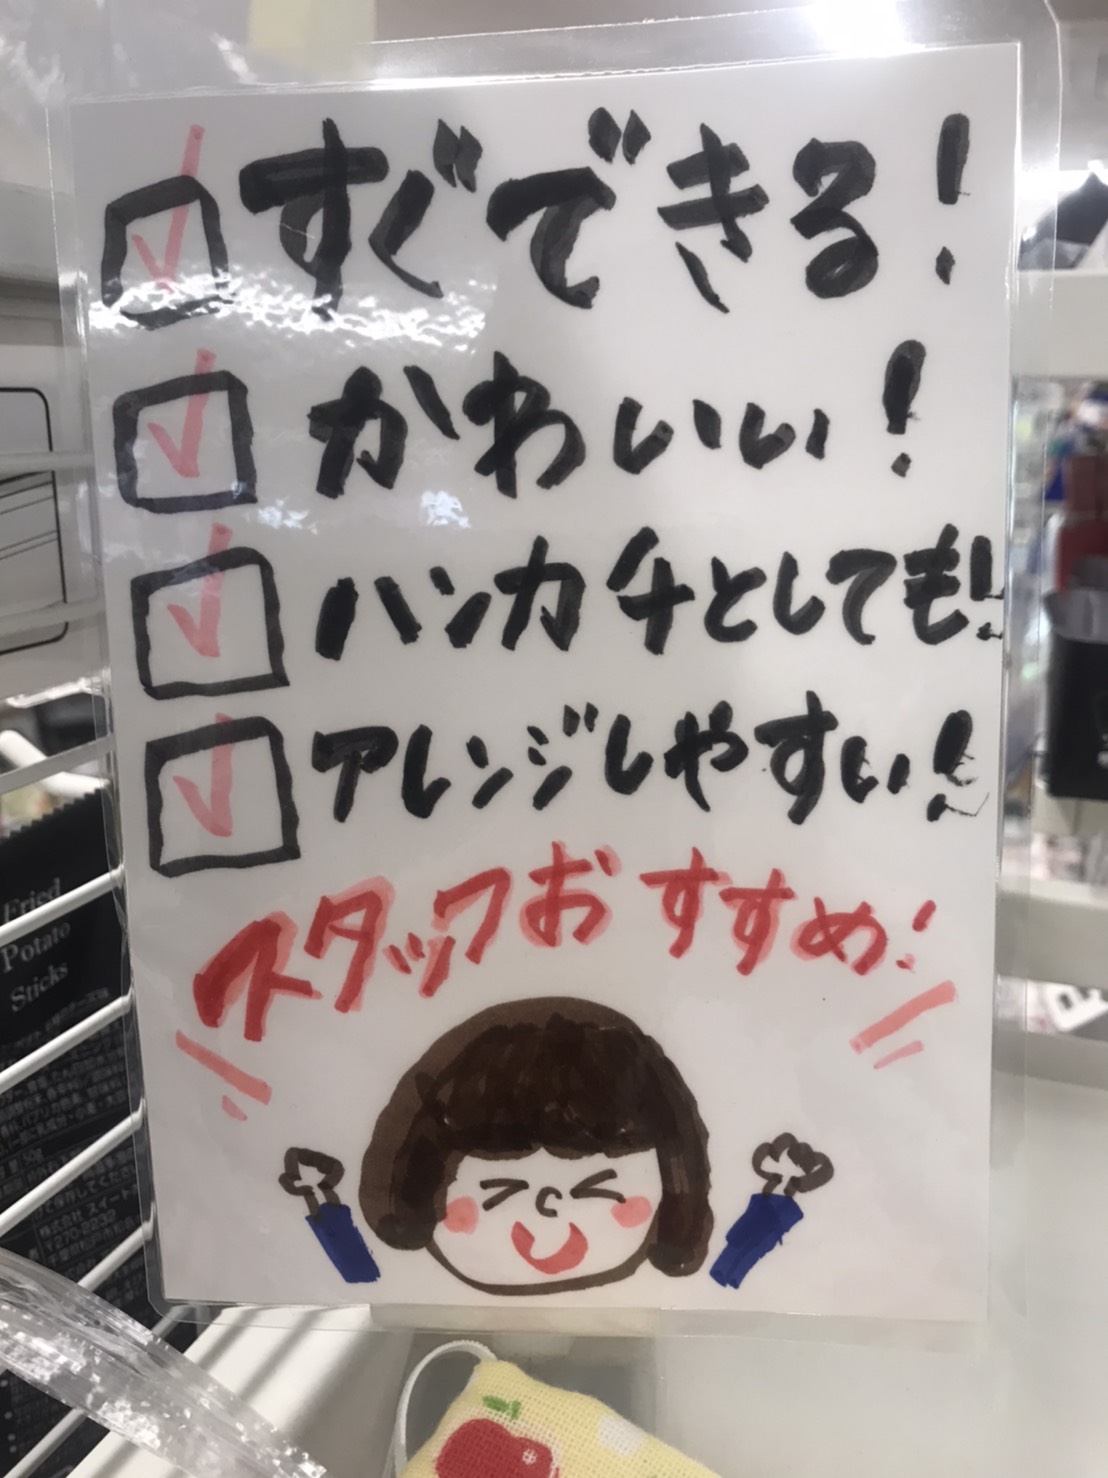 すぐできる!
かわいい!
ハンカチとしても!
アレンジしやすい!
スタッフおすすめ!
Fried
Potato
Sticks